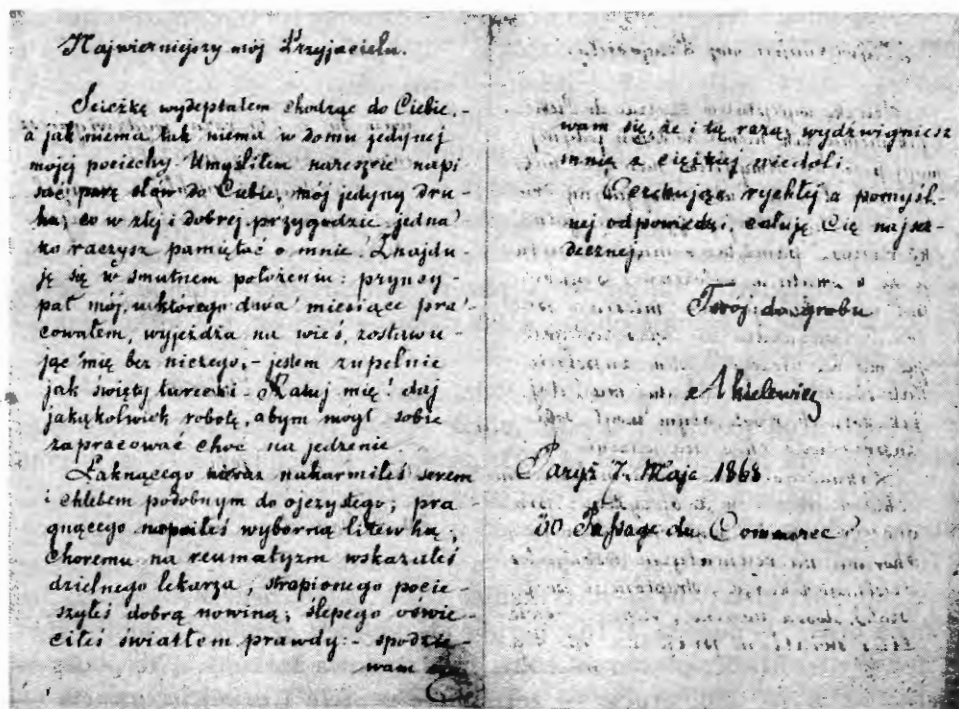 Najwierniejszy mój Przyjacielu.
Scieżkę wydeptałem chodząc do Ciebie, -
a jak niema tak niema w domu jedynej
mojej pociechy. Umyśliłem nareszcie napi
sać parę słów do Ciebie, mój jedyny dru
hu, co w złej i dobrej przygodzie jedna
ko raczysz pamiętać o mnie. Znajdu-
ję się w smutnem położeniu: pryncy-
pał mój, u którego dwa miesiące pra
cowałem, wyjeżdża na wieś, zostawu-
jąc mię bez niczego, - jestem zupełnie
jak święty turecki. Ratuj mię! daj
jakąkolwiek robotę, abym mogł sobie
zapracować choć na jedzenie.
Łaknącego nieraz nakarmiłeś serem
i chlebem podobnym do ojczystego; pra
gnącego napoiłeś wyborną litewką;
choremu na reumatyzm wskazałeś
dzielnego lekarza; strapionego pocie-
szyłeś dobrą nowiną; ślepego oświe-
ciłeś światłem prawdy: - spodzie-
wam
wam się, że i tą razą, wydźwigniesz
mnię z ciężkiej niedoli.
Oczekując rychłej a pomyśl-
nej odpowiedzi, całuję Cię najser-
deczniej
Twój do grobu
Akielewicz
Paryż 7. Maja 1868.
30 Passage du Commerce